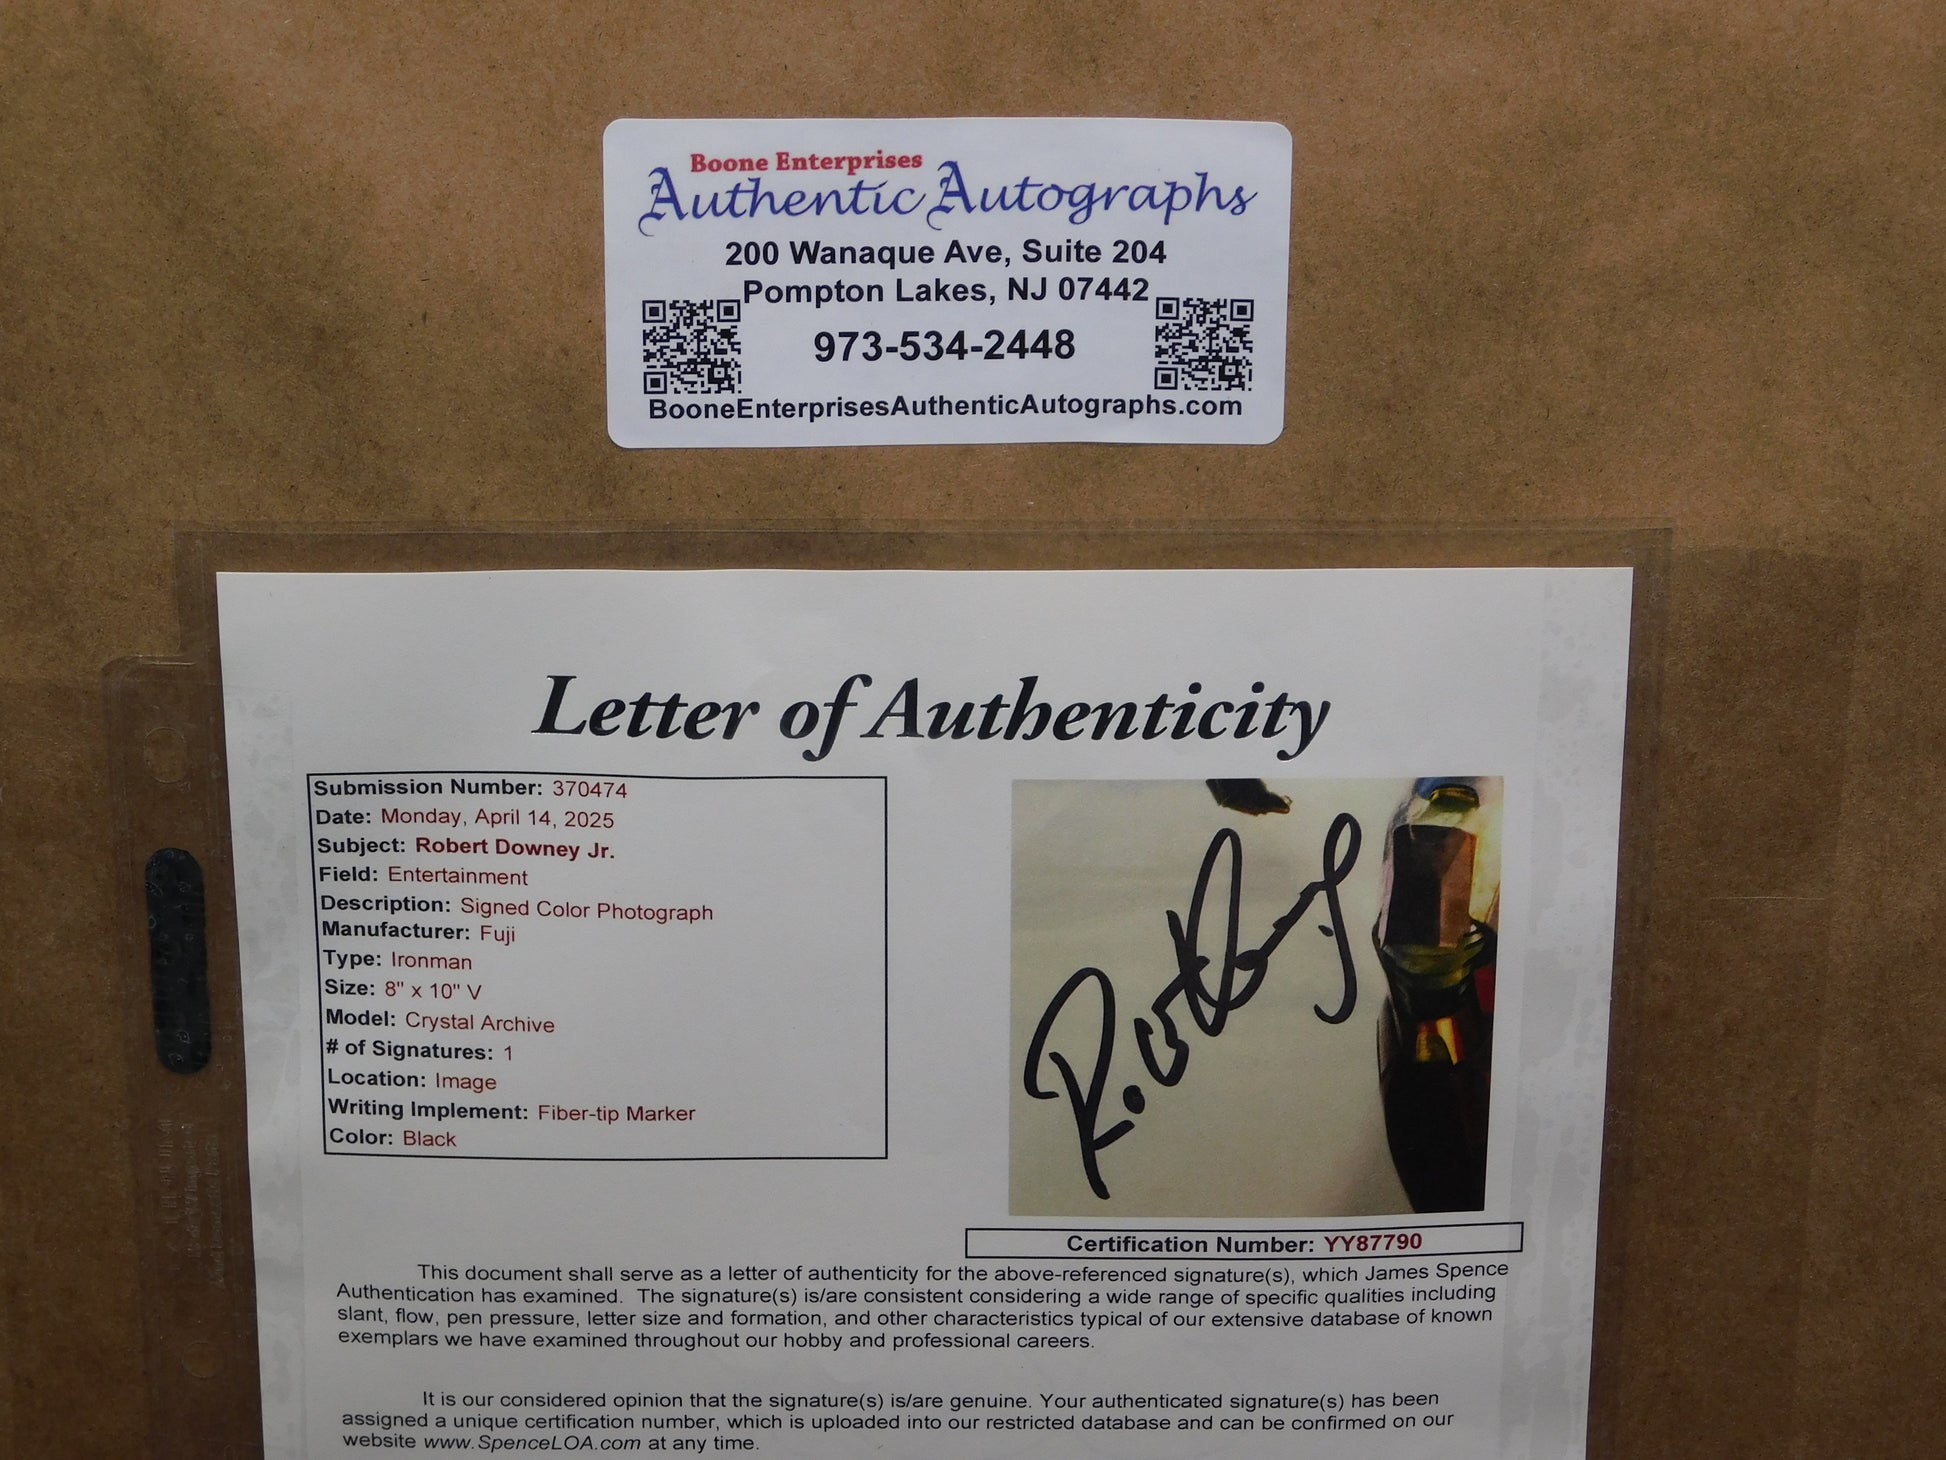 Boone Enterprises
Authentic Autographs
200 Wanaque Ave, Suite 204
Pompton Lakes, NJ 07442
973-534-2448
BooneEnterprisesAuthenticAutographs.com
Letter of Authenticity
Submission Number: 370474
Date: Monday, April 14, 2025
Subject: Robert Downey Jr.
Field: Entertainment
Description: Signed Color Photograph
Manufacturer: Fuji
Type: Ironman
Size: 8" x 10" V
Model: Crystal Archive
# of Signatures: 1
Location: Image
Writing Implement: Fiber-tip Marker
Color: Black
Certification Number: YY87790
This document shall serve as a letter of authenticity for the above-referenced signature(s), which James Spence
Authentication has examined. The signature(s) is/are consistent considering a wide range of specific qualities including
slant, flow, pen pressure, letter size and formation, and other characteristics typical of our extensive database of known
exemplars we have examined throughout our hobby and professional careers.
It is our considered opinion that the signature(s) is/are genuine. Your authenticated signature(s) has been
assigned a unique certification number, which is uploaded into our restricted database and can be confirmed on our
website www.SpenceLOA.com at any time.